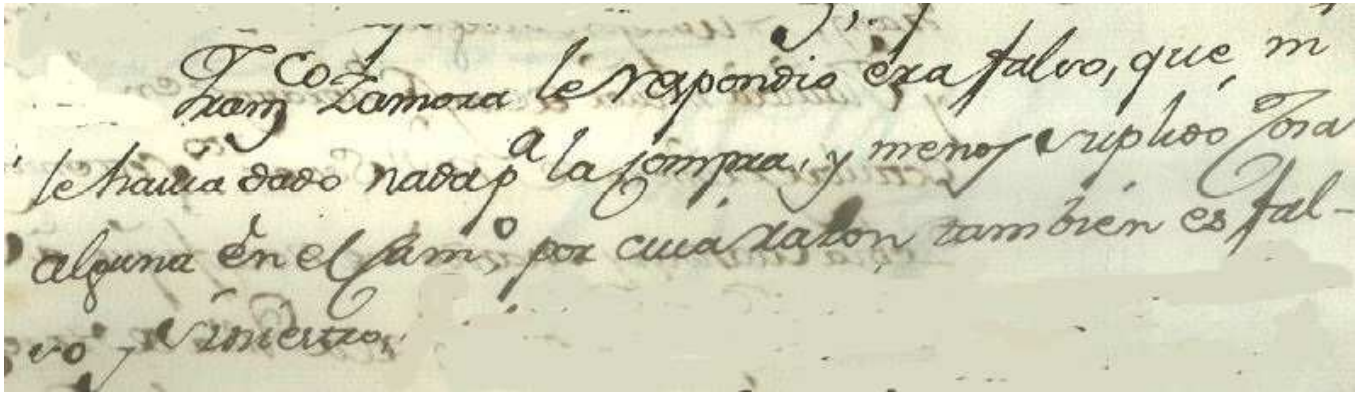 Franco Zamora le respondio era falso, que ni
le havia dado nada pa la Compra, y menos suplido Cosa
alguna en el Camo por cuia razon tambien es fal-
so y siniestro,